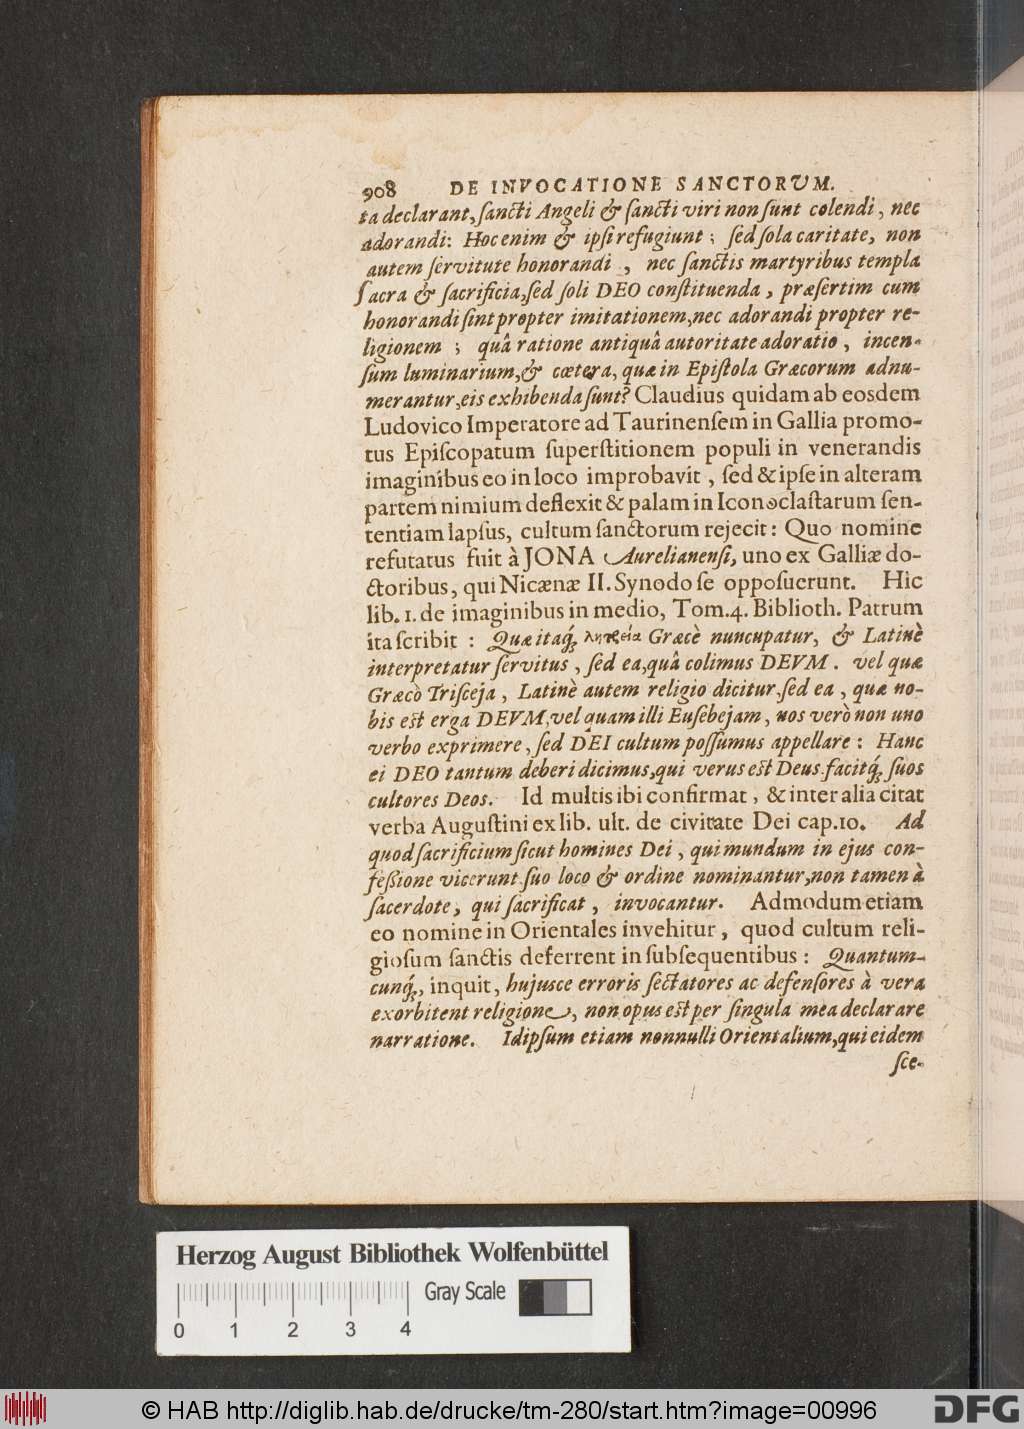 908 DE INVOCATIONE SANCTORVM.
ta declarant, ſancti Angeli & ſancti viri non ſunt colendi, nec
adorandi: Hoc enim & ipſi refugiunt; ſed ſola caritate, non
autem ſervitute honorandi, nec ſanctis martyribus templa
ſacra & ſacrificia, ſed ſoli DEO conſtituenda, præſertim cum
honorandi ſint propter imitationem, nec adorandi propter re-
ligionem; quâ ratione antiquâ autoritate adoratio, incen-
ſum luminarium, & cœtera, quæ in Epiſtola Græcorum adnu-
merantur, eis exhibenda ſunt? Claudius quidam ab eosdem
Ludovico Imperatore ad Taurinenſem in Gallia promo-
tus Epiſcopatum ſuperſtitionem populi in venerandis
imaginibus eo in loco improbavit, ſed & ipſe in alteram
partem nimium deflexit & palam in Iconoclaſtarum ſen-
tentiam lapſus, cultum ſanctorum rejecit: Quo nomine
refutatus fuit à JONA Aurelianenſi, uno ex Galliæ do-
ctoribus, qui Nicænæ II. Synodo ſe oppoſuerunt. Hic
lib. 1. de imaginibus in medio, Tom. 4. Biblioth. Patrum
ita ſcribit: Quæ itaq́; Græcè nuncupatur, & Latinè
interpretatur ſervitus, ſed ea, quâ colimus DEVM. vel quæ
Græcò Triſceja, Latinè autem religio dicitur, ſed ea, quæ no-
bis eſt erga DEVM, vel quam illi Euſebejam, nos verò non uno
verbo exprimere, ſed DEI cultum poſſumus appellare: Hanc
ei DEO tantum deberi dicimus, qui verus eſt Deus, facitq́; ſuos
cultores Deos. Id multis ibi confirmat, & inter alia citat
verba Auguſtini ex lib. ult. de civitate Dei cap. 10. Ad
quod ſacrificium ſicut homines Dei, qui mundum in ejus con-
feßione vicerunt ſuo loco & ordine nominantur, non tamen à
ſacerdote, qui ſacrificat, invocantur. Admodum etiam
eo nomine in Orientales invehitur, quod cultum reli-
gioſum ſanctis deferrent in ſubſequentibus: Quantum-
cunq́;, inquit, hujusce erroris ſectatores ac defenſores à vera
exorbitent religione, non opus eſt per ſingula mea declarare
narratione. Idipſum etiam nonnulli Orientalium, qui eidem
ſce-
Herzog August Bibliothek Wolfenbüttel
Gray Scale
0 1 2 3 4
© HAB http://diglib.hab.de/drucke/tm-280/start.htm?image=00996
DFG